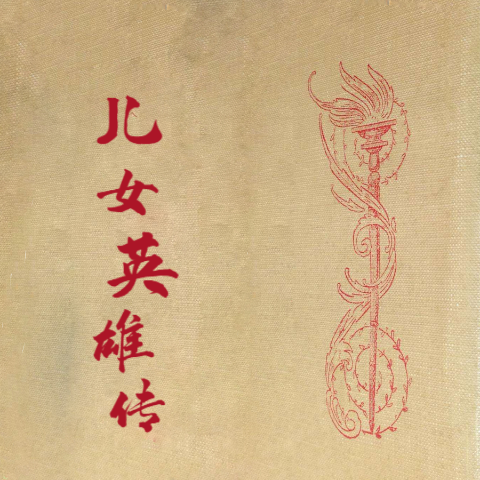 儿女英雄传